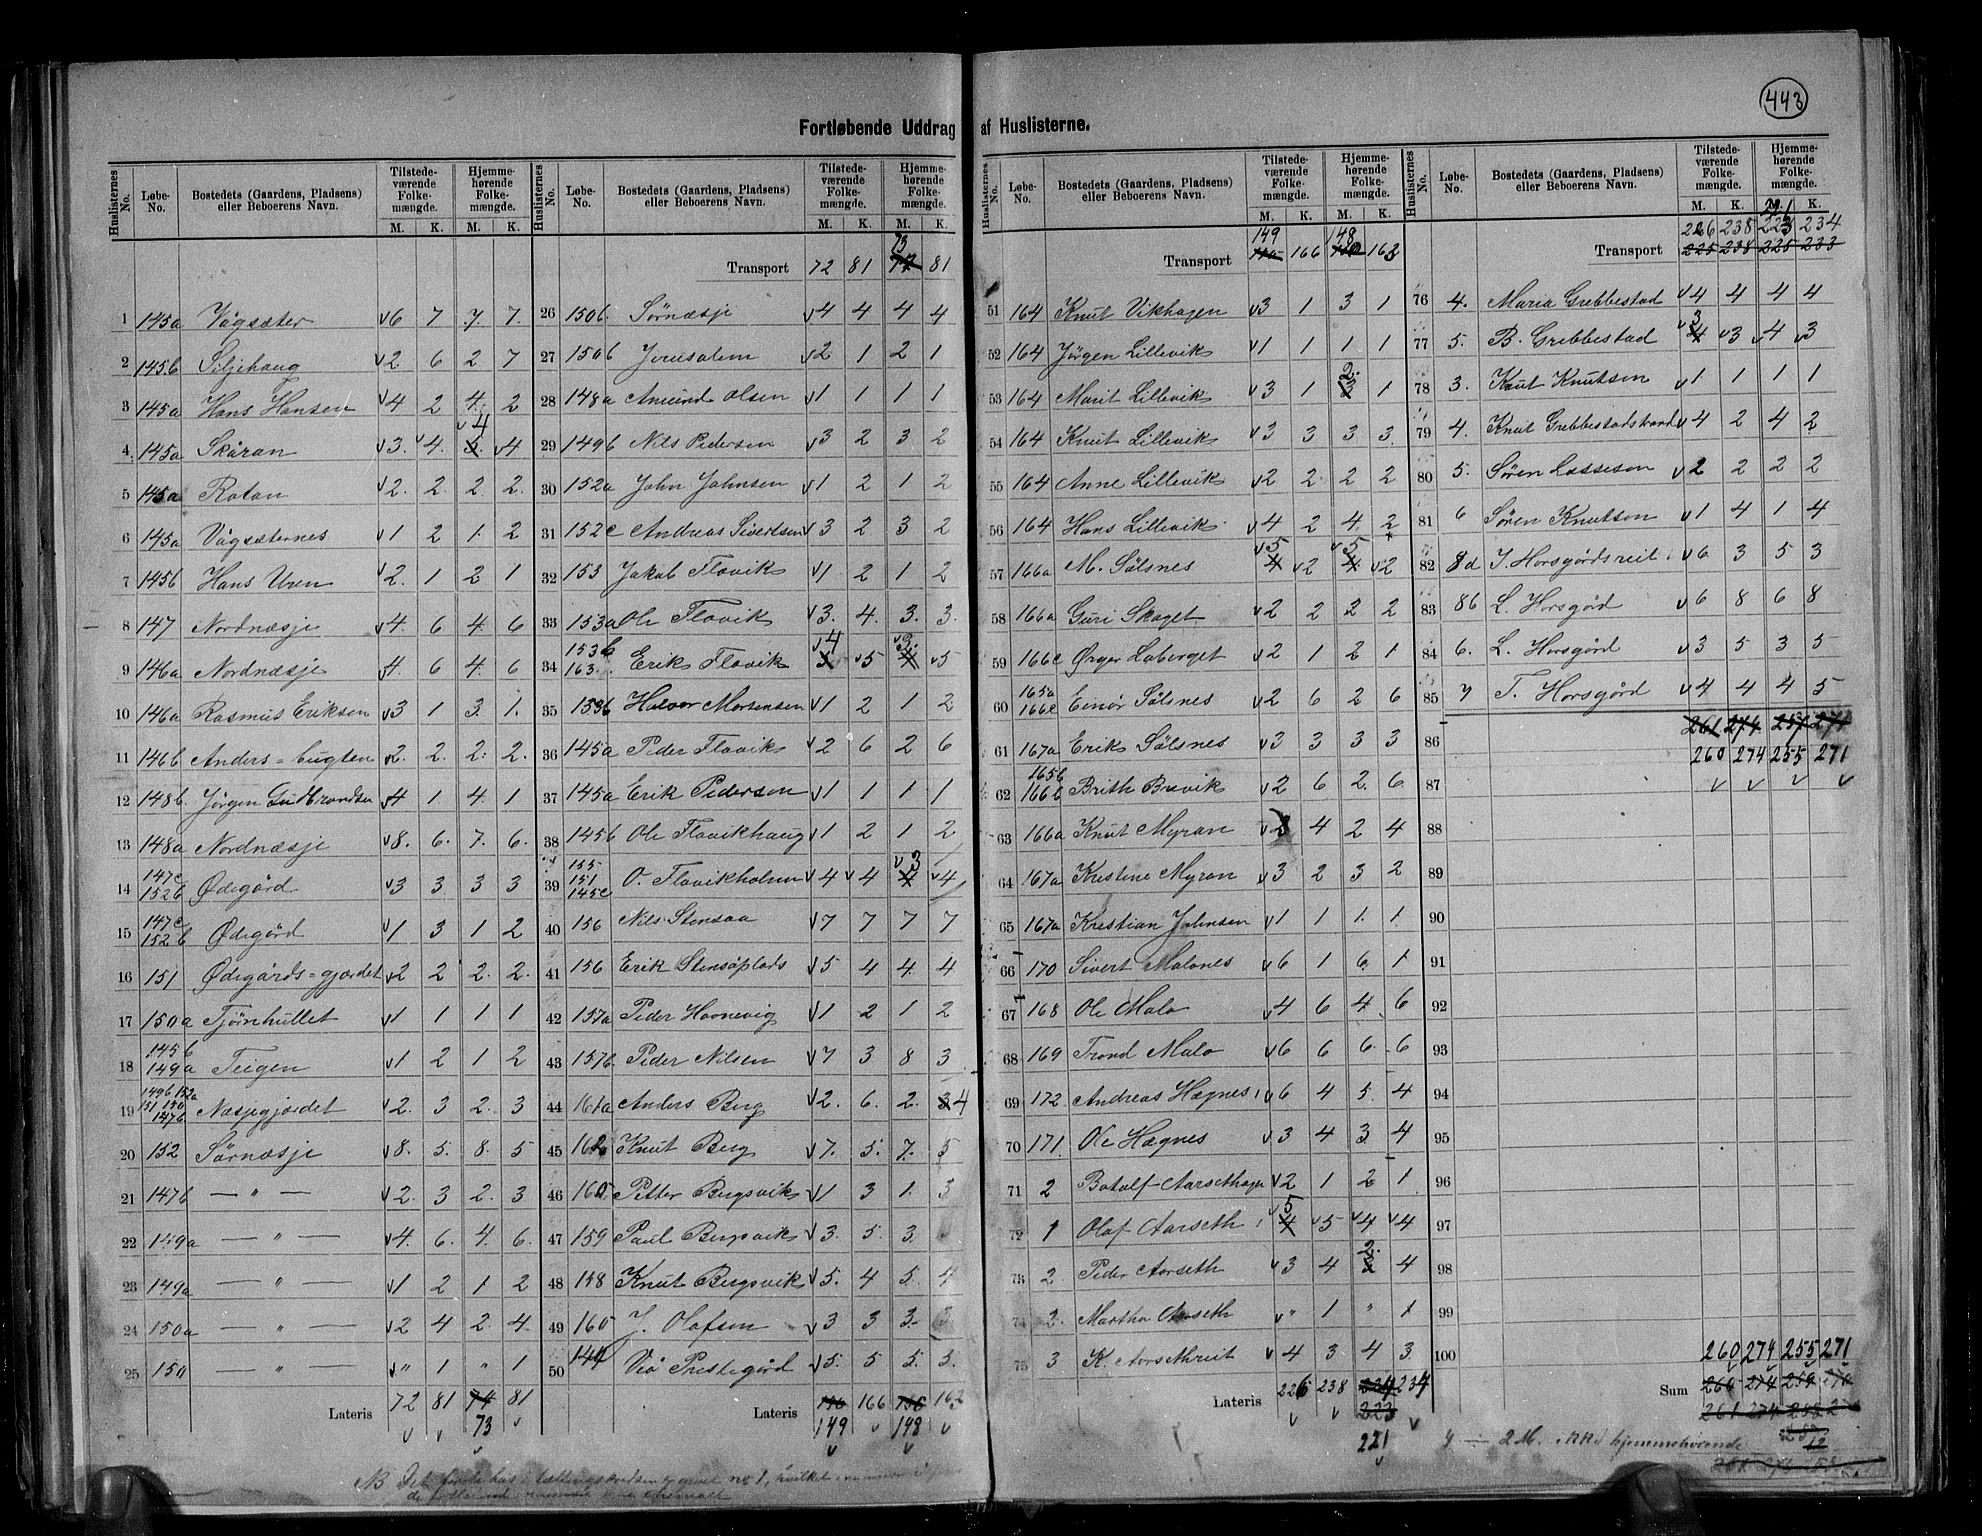 443
Fortløbende Uddrag af Huslisterne.
Huslisternes No. Løbe-No. Bostedets (Gaardens, Pladsens) eller Beboerens Navn. Tilstedeværende Folkemængde. M. K. Hjemmehørende Folkemængde. M. K.
1 145a Vågsæter 6 7 7. 7.
2 145b Siljehaug 2 6 2 7
3 145a Hans Hansen 4 2 4. 2
4 145a Skåran 3. 4. 3. 4 4
5 145a Rotan 2. 2. 2. 2.
6 145a Vågsæternes 1 2 1. 2
7 145b Hans Uren 2. 1 2 1
8 147 Nordnæsje 4. 6 4. 6
9 146a Nordnæsje 4. 6 4. 6
10 146a Rasmus Eriksen 3 1 3. 1.
11 146b Anders-bugten 2. 2. 2. 2.
12 148b. Jørgen Gudbrandsen 4 1 4. 1
13 148a Nordnæsje 8. 6. 7. 6.
14 147c 152b Ødegård 3 3. 3 3
15 147c 152b Ødegård 1 3 1 2
16 151 Ødegårds=gjærdet 2 2 2. 2.
17 150a Tjørnhullet 1 1 1 1
18 145b 149a Teigen 1 2 1 2
19 149b 152a 151 150 147b Næsjegjærdet 2. 3 2. 3
20 152 Sørnæsje 8. 5. 8. 5
21 147b — " — 2. 3 2. 3
22 149a — " — 4. 6. 4. 6.
23 149a — " — 1 2 1 2
24 150a — " — 2 4 2. 4.
25 150 — " — " 1 " 1
Lateris 72 81 74 81
73
Transport 72 81 74 73 81
26 150b. Sørnæsje 4 4 4 4
27 150b Jerusalem 2 1 2 1
28 148a Amund Olsen 1 1 1 1
29 149b Nils Pedersen 3 2 3 2
30 152a John Johnsen 1 2 1 2
31 152c Andreas Sivertsen 3 2 3 2
32 153 Jakob Flovik 1 2 1 2
33 153a Ole Flovik 3. 4. 3. 3.
34 153b 163. Erik Flovik 3 4 5 4 3. 5
35 153b Halvor Mortensen 1 2 1 2
36 145a Peder Flovik 2 6 2 6
37 145a Erik Pedersen 1 1 1 1
38 145b Ole Flovikhaug 1 2 1 2
39 155 151 145c O. Flovikholm 4 4 4 3 4
40 156 Nils Stensaa 7 7 7 7
41 156 Erik Stensåplads 5 4 4. 4
42 157a Peder Hovnevig 1 2 1 2
43 157b. Peder Nilsen 7 3 8 3
44 161a Anders Berg 2. 6. 2. 3 4
45 162 Knut Berg 7. 5. 7. 5
46 160. Petter Bergsvik 1 3 1. 3
47 159 Paul Bergsvik 3. 5. 3.
48 158 Knut Bergsvik 5. 4 5. 4
49 160 J. Olafsen 3 3 3. 3
50 144 Veø Prestegård 5. 5 5. 5.
Lateris 166 162
149 148
Transport 149 166 148 162
51 164 Knut Vikhagen 3 1 3 1
52 164 Jørgen Lillevik 1 1 1 1
53 164 Marit Lillevik 3 1 3 2. 1
54 164 Knut Lillevik 3 3 3 3.
55 164 Anne Lillevik 2 2 2 2
56 164 Hans Lillevik 4 2 4. 2
57 166a M. Sølsnes 4 5 2 4. 5 2
58 166a Guri Skaget 2 2 2 2
59 166c Ørger Laberget 2 1 2 1
60 165a 166c Einör Sølsnes 2 6 2 6
61 167a Erik Sølsnes 3 3 3 3
62 165b 166b Brith Brevik 2 6 2. 6.
63 166a Knut Myran 3 4 2 4
64 167a Kristine Myran 3 2 3 2
65 167a Kristian Johnsen 1 1 1. 1.
66 170 Sivert Malones 6 1 6 1
67 168 Ole Malo 4 6 4 6
68 169 Trond Malo 6 6 6. 6
69 172. Andreas Hægnes 6 4 5. 4
70 171. Ole Hægnes 3 4 3. 4
71 2 Botolf Aarsethagen 2 1 2 1.
72 1 Olaf Aarseth 4 5 5 4 4
73 2 Peder Aarseth 3 4 3 2. 4
74 2. Martha Aarseth " 1 " 1
75 3 K. Aarsethreit 4 3 4 3.
Lateris 226 238 224 234
223
221
Transport 226 238 223 221 234
225 238 225 233
76 4. Maria Grebbestad 4 4 4 4
77 5. B. Grebbestad 4 3 3 4 3
78 3. Knut Knutsen 1 1 1 1
79 4. Knut Grebbestadstrand 4 2 4 2
80 5. Søren Lasseson 2 2 2 2
81 6 Søren Knutson 1 4 1 4
82 8d J. Horsgårdsreit 6 3 5 3
83 8b L. Horsgård 6 8 6 8
84 6. L. Horsgård 3 5 3 5
85 7 T. Horsgård 4 4 4 5
261 274 257 271
86 260 274 255 271
87
88
89
90
91
92
93
94
95
96
97
98
99
100 260 274 255 271
Sum 260 274 259 270
261 274 258
2 M. hjemmehørende
NB Det første hus i tællingskredsen no 1, hvilket